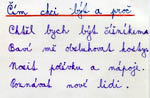 Čím chci být a proč
Chtěl bych být číšníkem.
Baví mě obsluhovat hosty.
Nosit polévku a nápoje.
Poznávat nové lidi.